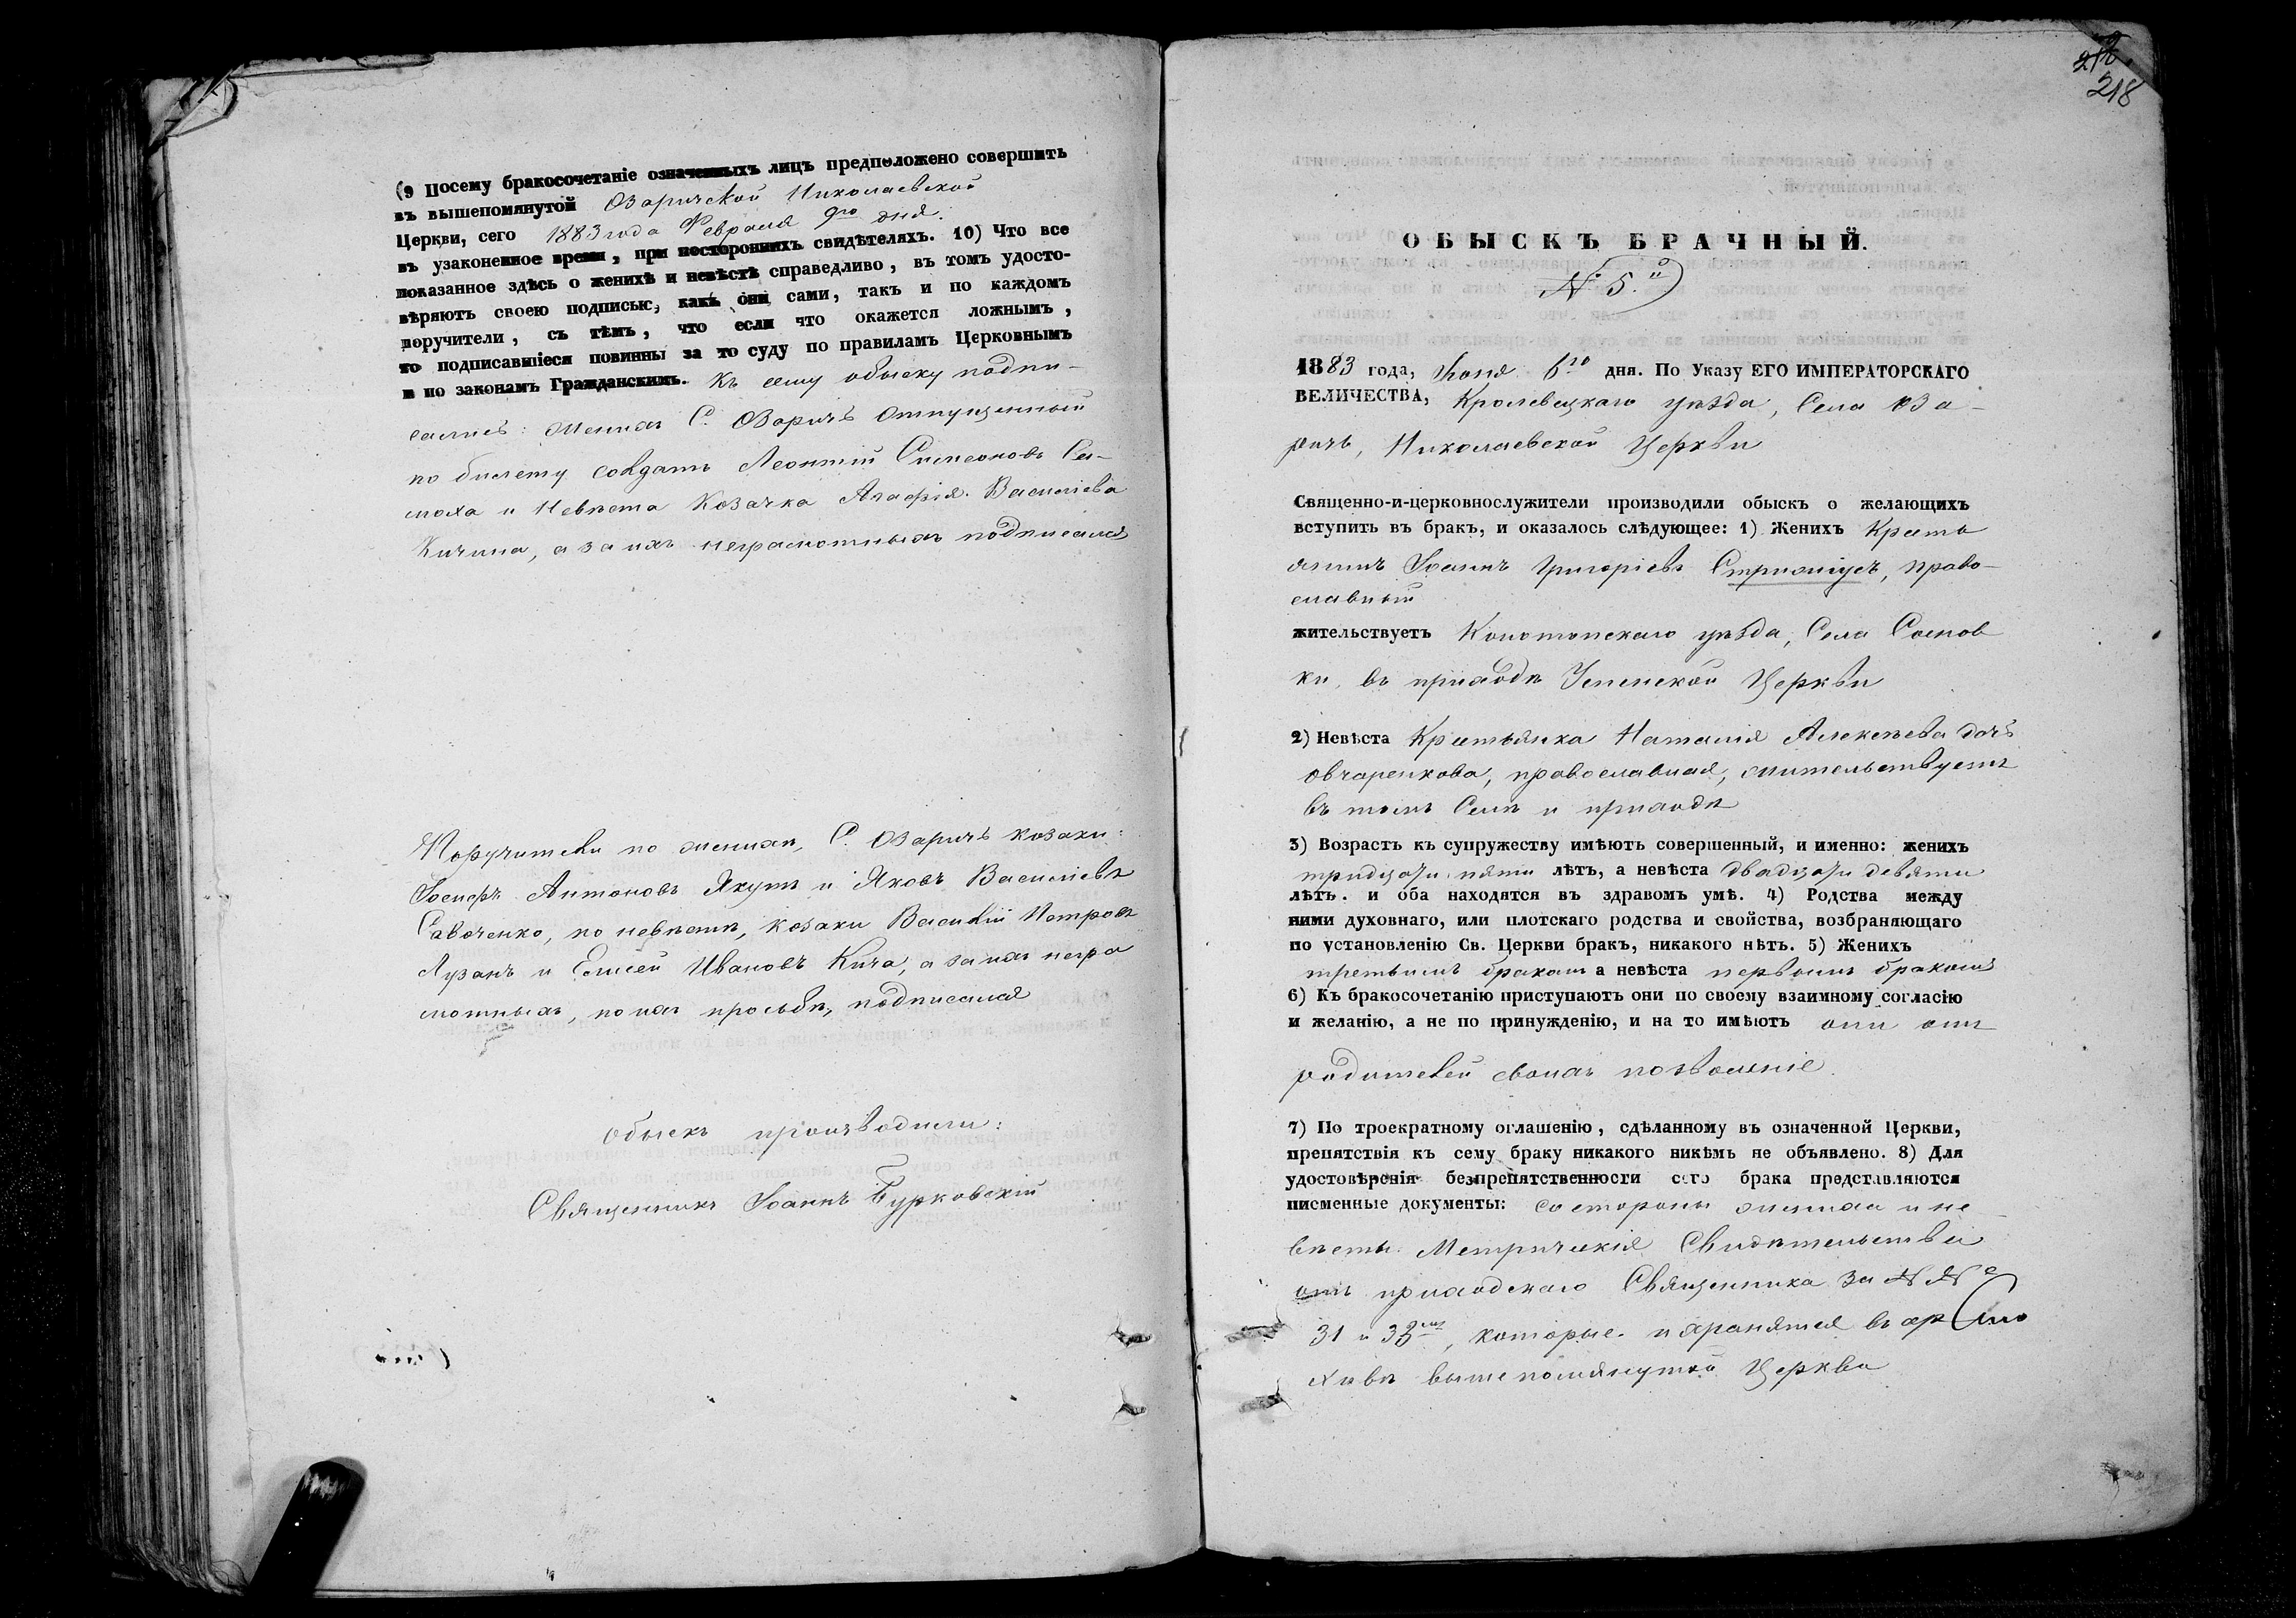 (9 Посему бракосочетаніе означенныхъ лицъ предположено совершить
въ вышепомянутой Озаричской Николаевской
Церкви, сего 1883 года Февраля 9го дня.
въ узаконенное время, при постороннихъ свидѣтеляхъ. 10) Что все
показанное здѣсь о женихѣ и невѣстѣ справедливо, въ томъ удосто-
вѣряютъ своею подписью, какъ они сами, такъ и по каждомъ
поручители, съ тѣмъ, что если что окажется ложнымъ,
то подписавшіеся повинны за то суду по правиламъ Церковнымъ
и по законамъ Гражданскимъ. Къ сему обыску подпи-
сались: Женихъ С. Озаричъ Отпущенный
по билету солдатъ Леонтій Симеоновъ
и Невѣста Козачка Агафія Василіева
Кичина, а за ихъ неграмотныхъ подписался
Поручители по женихѣ, С. Озаричъ козаки:
Іосифъ Антоновъ Якутъ и Яковъ Василіевъ
Савоченко, по невѣстѣ, козаки Василій Петровъ
Лузанъ и Елисей Ивановъ Кича, а за ихъ негра
мотныхъ, по ихъ прозьбѣ, подписался
Обыскъ производили:
Священникъ Іоаннъ Бурковскій
218
ОБЫСКЪ БРАЧНЫЙ.
№ 5.й
1883 года, Іюня 6го дня. По Указу ЕГО ИМПЕРАТОРСКАГО
ВЕЛИЧЕСТВА, Кролевецкаго уѣзда, Села Оза-
ричъ, Николаевской Церкви
Священно-и-церковнослужители производили обыскъ о желающихъ
вступить въ бракъ, и оказалось слѣдующее: 1) Женихъ Кресть
янинъ Іоаннъ Григоріевъ право-
славный
жительствуетъ Конотопскаго уѣзда, Села Соснов
ки, въ приходѣ Успенской Церкви
2) Невѣста Крестьянка Наталія Алексѣева дочь
Овчаренкова, православная, жительствуетъ
въ томъ Селѣ и приходѣ
3) Возрастъ къ супружеству имѣютъ совершенный, и именно: женихъ
тридцати пяти лѣтъ, а невѣста двадцати девяти
лѣтъ. и оба находятся въ здравомъ умѣ. 4) Родства между
ними духовнаго, или плотскаго родства и свойства, возбраняющаго
по установленію Св. Церкви бракъ, никакого нѣтъ. 5) Женихъ
третьимъ бракомъ а невѣста первымъ бракомъ
6) Къ бракосочетанію приступаютъ они по своему взаимному согласію
и желанію, а не по принужденію, и на то имѣютъ они отъ
родителей своихъ позволеніе.
7) По троекратному оглашенію, сдѣланному въ означенной Церкви,
препятствія къ сему браку никакого никѣмъ не объявлено. 8) Для
удостовѣренія безпрепятственности сего брака представляются
писменные документы: со стороны жениха и не-
вѣсты Метрическія Свидѣтельства
отъ приходскаго Священника за №№
31 и которые и хранятся въ ар
хивѣ вышепомянутой Церкви